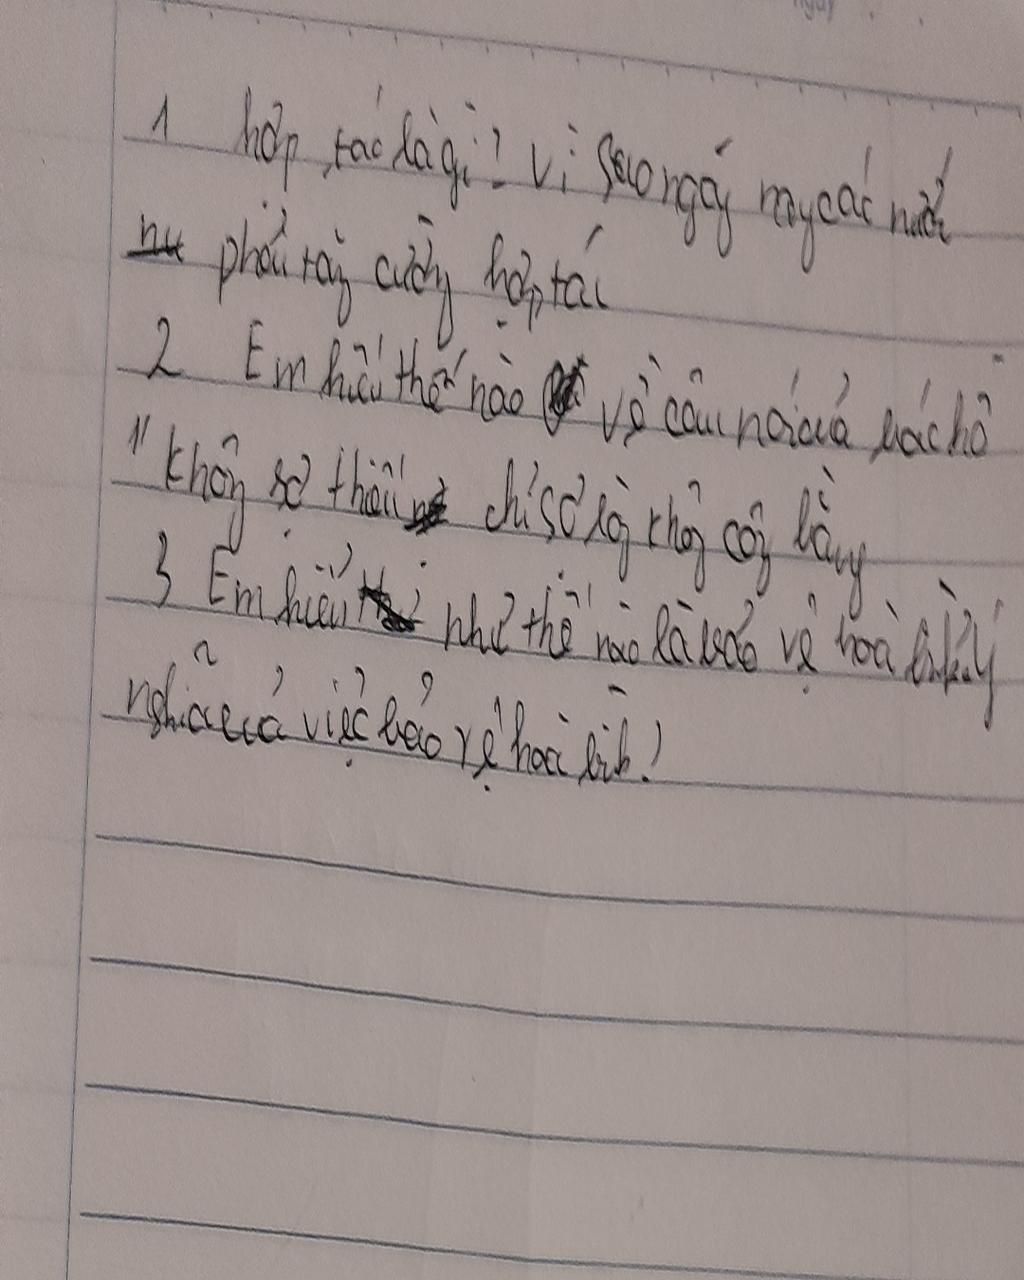 1 hợp tác là gì? Vì sao ngày nay các nước
phải tăng cường hợp tác
2 Em hiểu thế nào về câu nói của bác hồ
"không sợ thiếu chỉ sợ lòng không công bằng
3 Em hiểu như thế nào là bảo vệ hoà bình. ý
nghĩa của việc bảo vệ hoà bình?